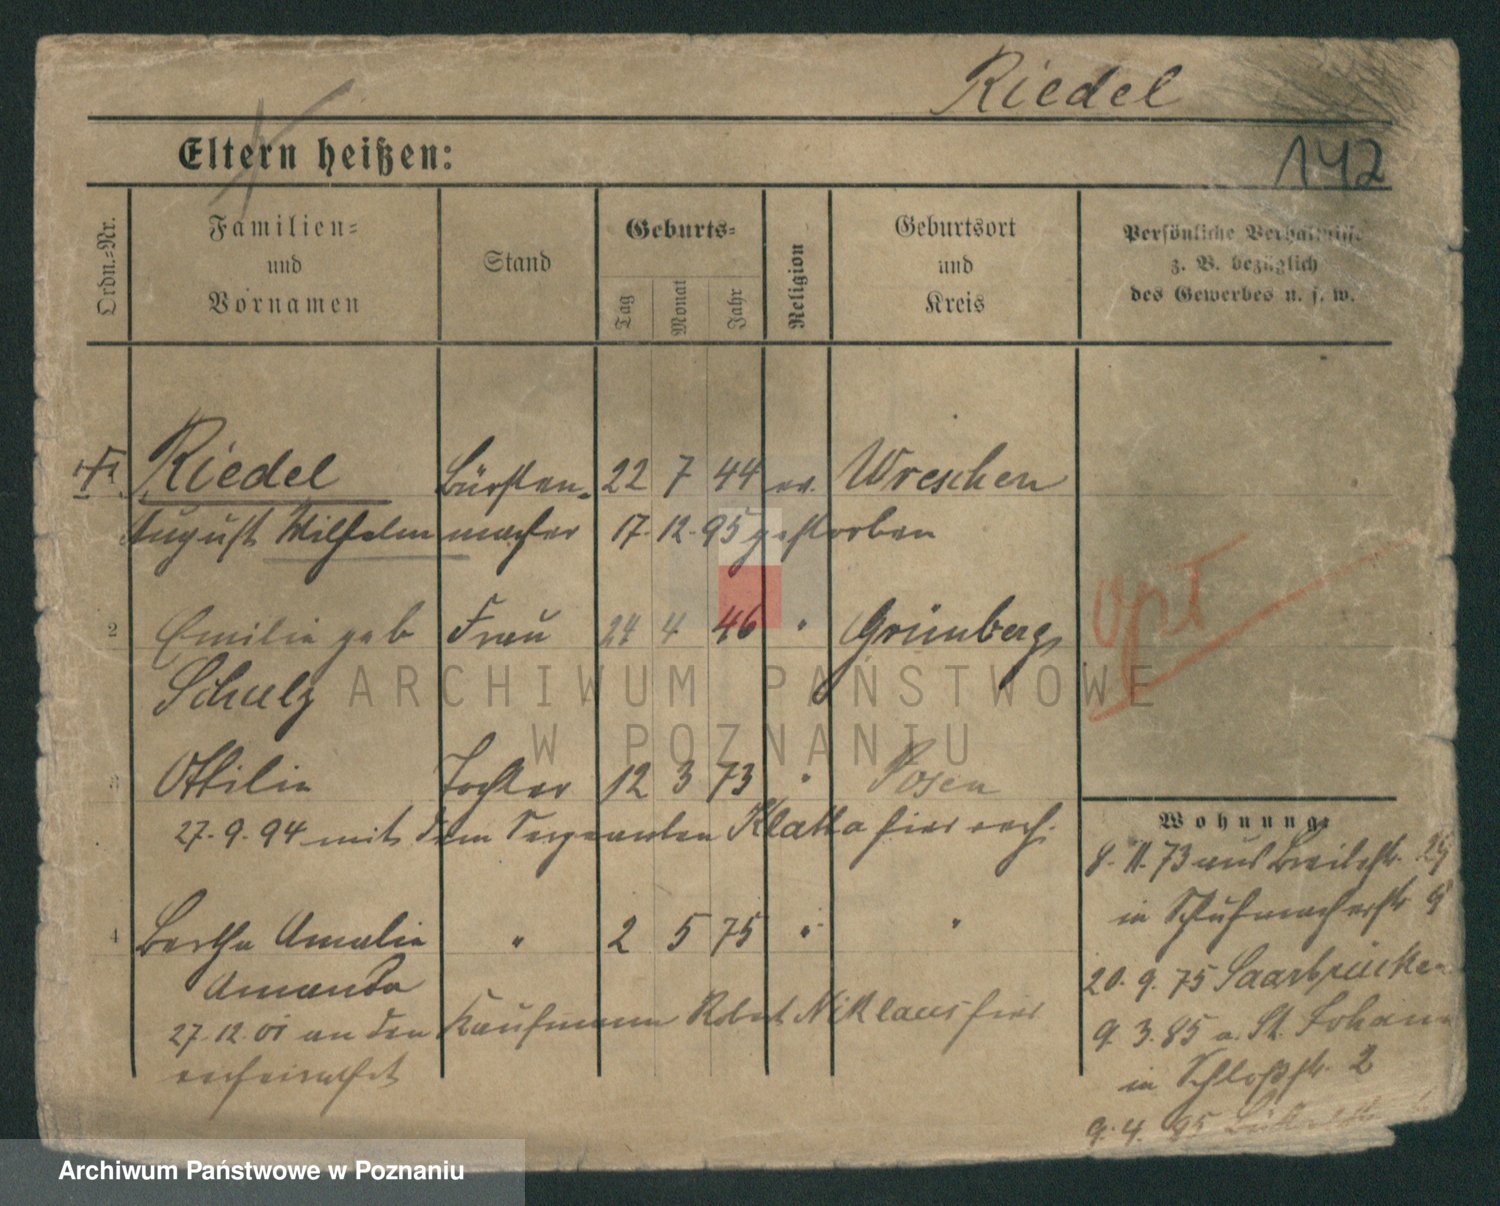 Riedel
Eltern heißen:
142
Ordn.-Nr.
Familien-
und
Vornamen
Stand
Geburts-
Tag
Monat
Jahr
Religion
Geburtsort
und
Kreis
Persönliche Verhältnisse
z. B. bezüglich
des Gewerbes u. s. w.
Riedel Bürsten- 22 7 44 ev. Wreschen
August Wilhelm macher 17. 12. 95 gestorben
2 Emilie geb Frau 24 4 46 " Grünberg
Schulz
3 Ottilie Tochter 12 3 73 " Posen
27. 9. 94 mit dem Sergeanten Klatta hier verh.
4 Bertha Amalie " 2 5 75 " "
Amanda
27. 12. 01 an den Kaufmann Robert Niklaus hier
verheirathet
opt
Wohnung:
8. 11. 73 aus Breitestr. 25
in Schuhmacherstr 9
20. 9. 75 Saarbrücken
9. 3. 85 a. St. Johann
in Schloßstr. 2
9. 4. 95
ARCHIWUM PAŃSTWOWE
W POZNANIU
Archiwum Państwowe w Poznaniu